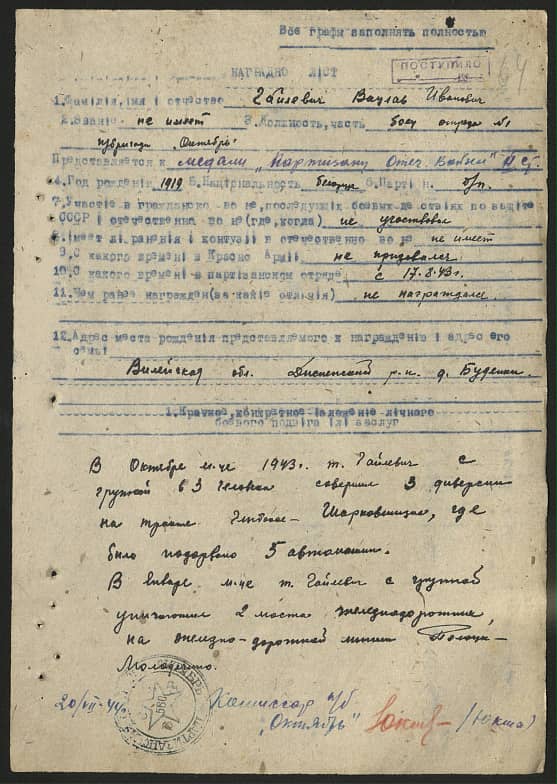 Все графы заполнять полностью
ПОСТУПИЛО
64
НАГРАДНО ЛІСТ
1.Фамілія,імя і отчество Вацлав Иванович
2.Звание не имеет 3.Должность,часть боец отряда №1
п/бригады "Октябрь"
Представляется к медали "Партизану Отеч. Войны" II ст.
4.Год рождения 1919 5.Национальность белорус 6.Парті н. б/п.
7.Участие в гражданско во не,последующих боевых де ствіях по защите
СССР і отечественно во не(где,когда) не участвовал
8.Імеет лі ранения і контузіі в отечественно во не не имеет
9.С какого времені в Красно Арміі не призывался
10.С какого времені в партизанском отряде с 17.8.43г.
11.Чем ранее награжден(за какіе отлічія) не награждался.
12.Адрес места рождения представляемого к награждению і адрес его
семьі
Вилейская обл. Дисненский р-н д.
1.Краткое,конкретное ізложение лічного
боевого подвіга ілі заслуг
В Октябре м-це 1943г. т. Гайлевич с
группой в 3 человека совершил 3 диверсии
на тракте Глубокое - Шарковщизна, где
было подорвано 5 автомашин.
В январе м-це т. Гайлевич с группой
уничтожил 2 моста железнодорожных,
на железно-дорожной линии Полоцк-
Молодечно.
20/VII-44г. Комиссар п/б
"Октябрь"